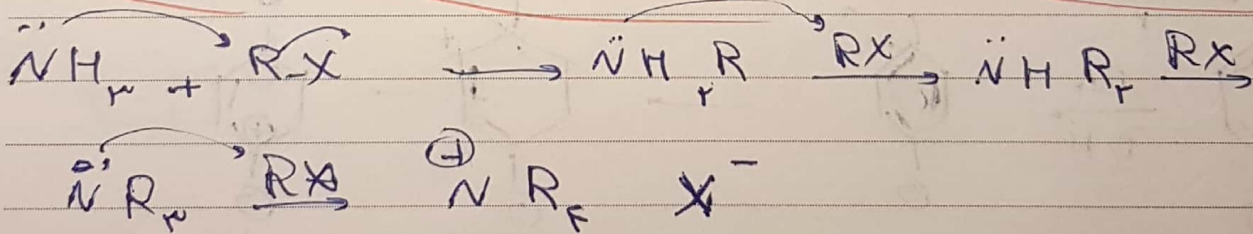 N̈H₃ + R-X → N̈H₂R RX → N̈HR₂ RX →
N̈R₃ RX → ⊕NR₄ X⁻